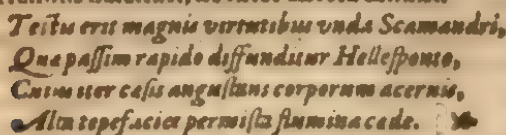 Testis erit magnis virtutibus vnda Scamandri,
Quæ passim rapido diffunditur Hellesponto,
Cuius iter cæsis angustans corporum aceruis,
Alta tepefaciet permista flumina cæde.